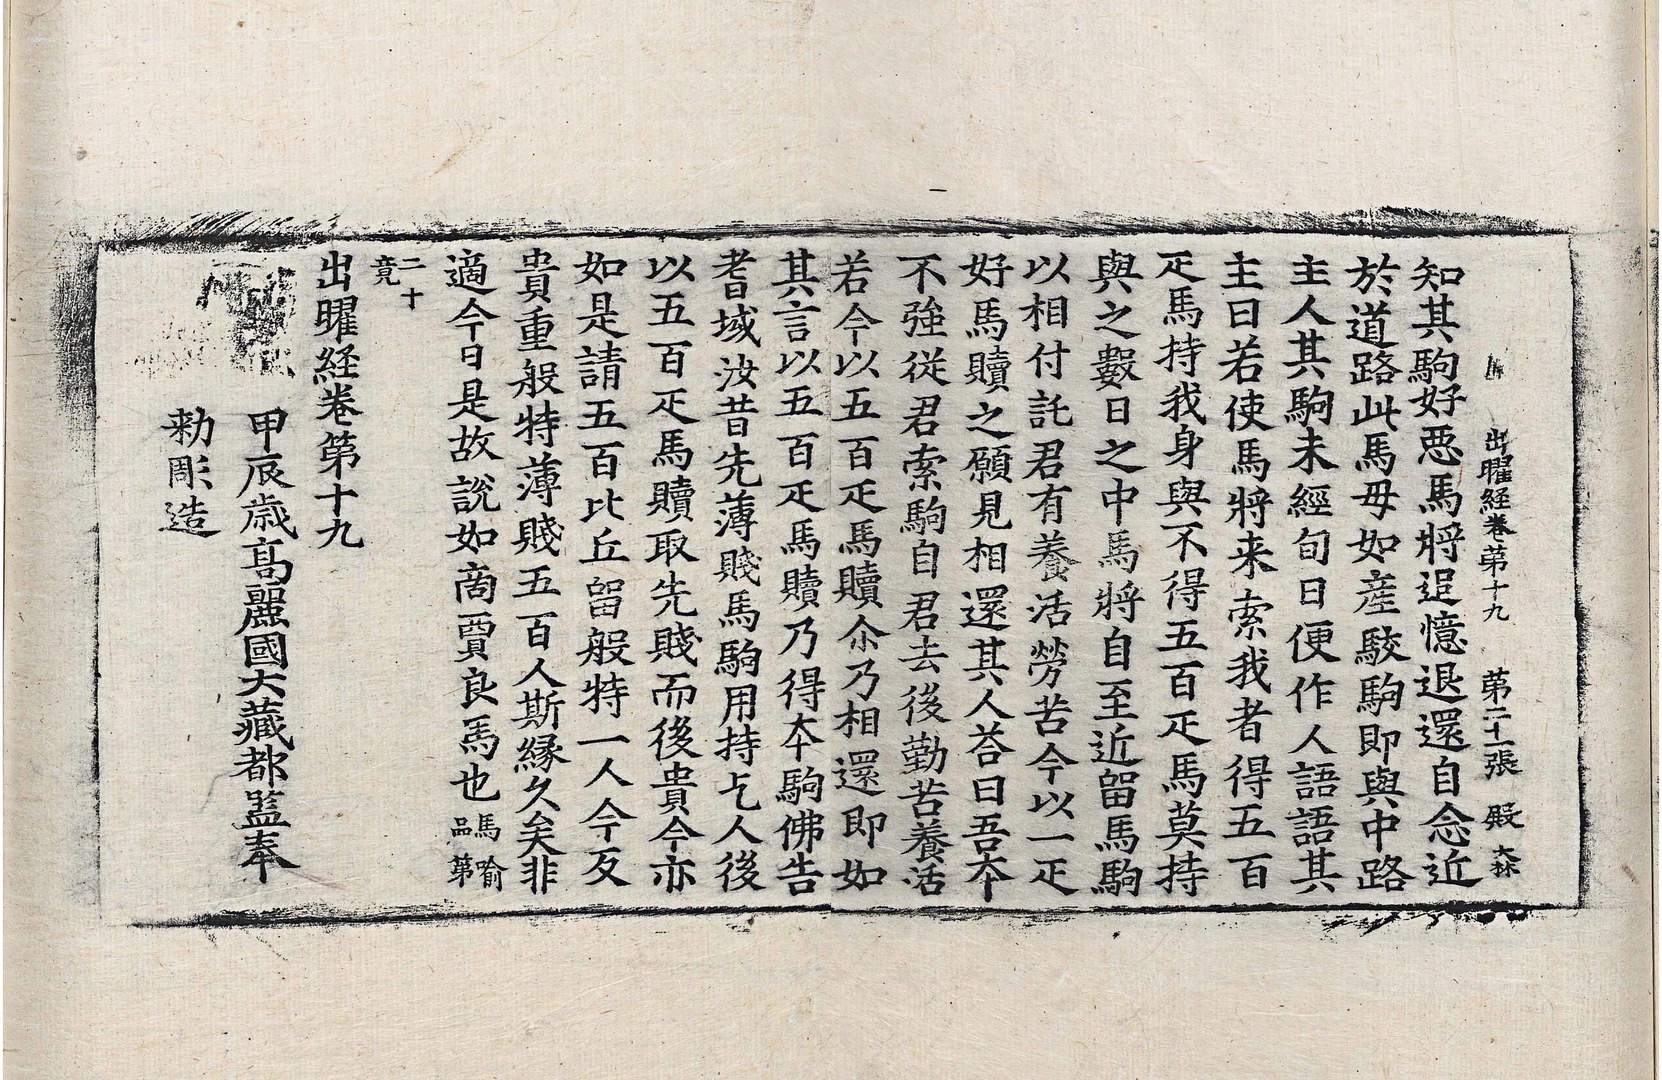 出曜経巻苐十九 苐二十一張 殿 大林
知其駒好惡馬將追憶退還自念近
於道路此馬毋如産駮駒即與中路
主人其駒未經旬日便作人語語其
主曰若使馬將来索我者得五百
疋馬持我身與不得五百疋馬莫持
與之數日之中馬將自至近留馬駒
以相付託君有養活勞苦今以一疋
好馬贖之願見相還其人荅曰吾夲
不強從君索駒自君去後勤苦養活
若今以五百疋馬贖尒乃相還即如
其言以五百疋馬贖乃得夲駒佛告
耆域汝昔先薄賤馬駒用持乞人後
以五百疋馬贖取先賤而後貴今亦
如是請五百比丘留般特一人今反
貴重般特薄賤五百人斯縁久矣非
適今日是故說如啇賈良馬也馬喻品苐
二十竟
出曜経巻苐十九
甲辰歳高麗國大藏都監奉
勅彫造